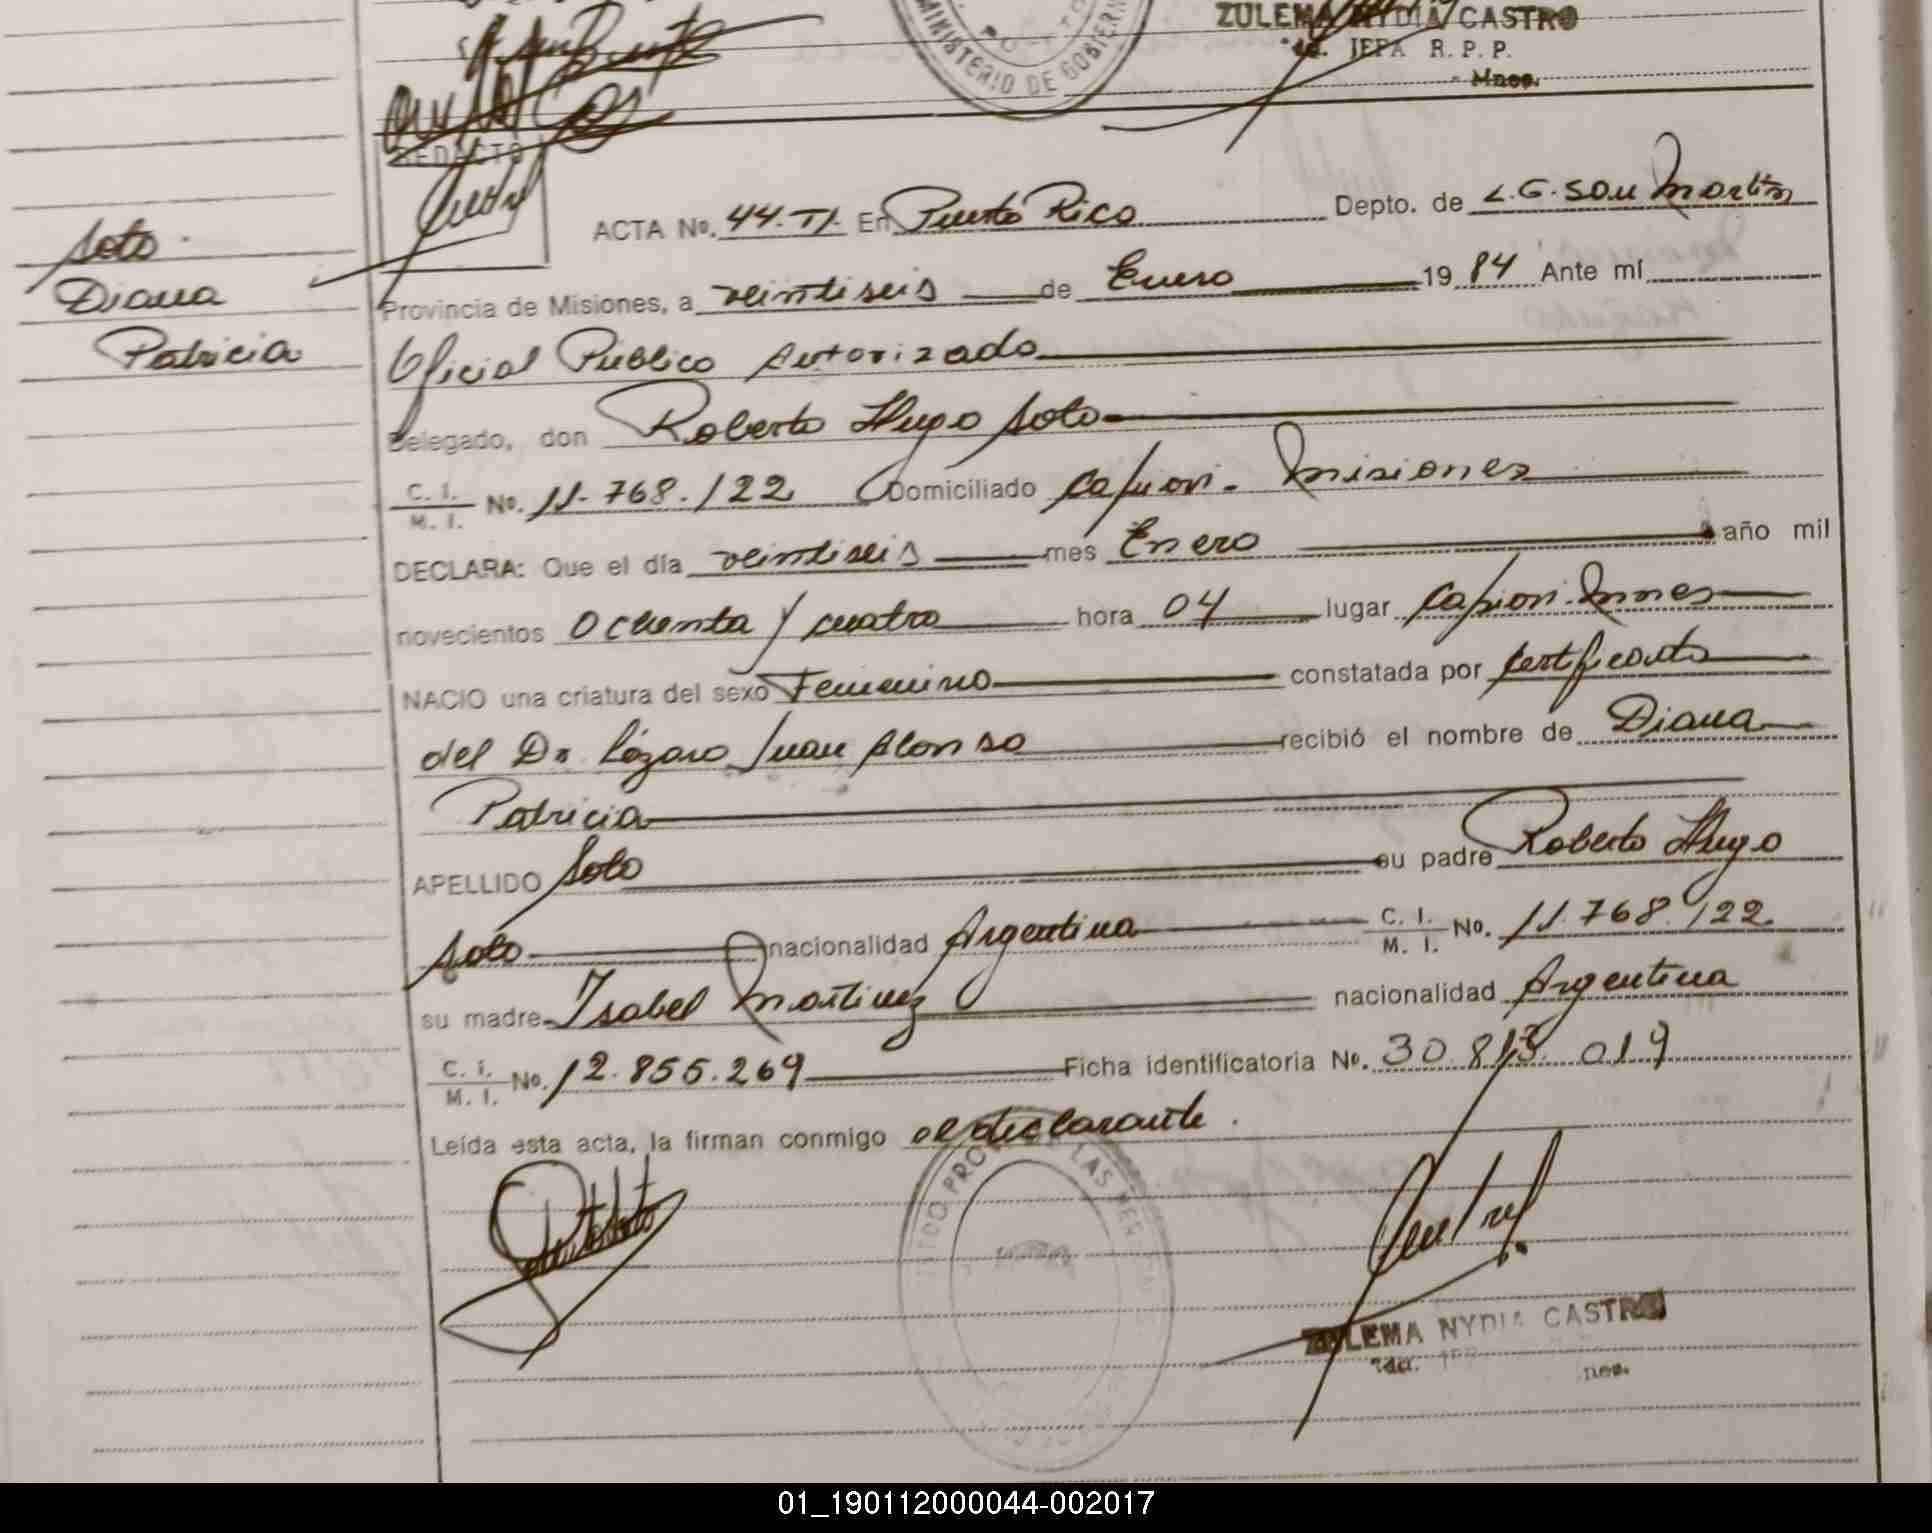 MINISTERIO DE GOBIERN
ZULEMA NYDIA CASTRO
JEFA R. P. P.
Mnes.
REDACTO
Soto
Diana
Patricia
ACTA No. 44. TI. En Puerto Rico Depto. de L. G. San Martín
Provincia de Misiones, a veintiseis de Enero 19 84 Ante mí
Oficial Público Autorizado
Delegado, don Roberto Hugo Soto
C. I. / M. I. No. 11.768.122 Domiciliado Capiovi - Misiones
DECLARA: Que el día veintiseis mes Enero año mil
novecientos Ochenta y cuatro hora 04 lugar Capiovi. Mnes
NACIO una criatura del sexo Femenino constatada por certificado
del Dr. Lázaro Juan Alonso recibió el nombre de Diana
Patricia
APELLIDO Soto su padre Roberto Hugo
Soto nacionalidad Argentina C. I. / M. I. No. 11.768.122
su madre Isabel Martinez nacionalidad Argentina
C. I. / M. I. No. 12.855.269 Ficha identificatoria No. 30.813.019
Leída esta acta, la firman conmigo el declarante.
ZULEMA NYDIA CASTRO
nes.
01_190112000044-002017